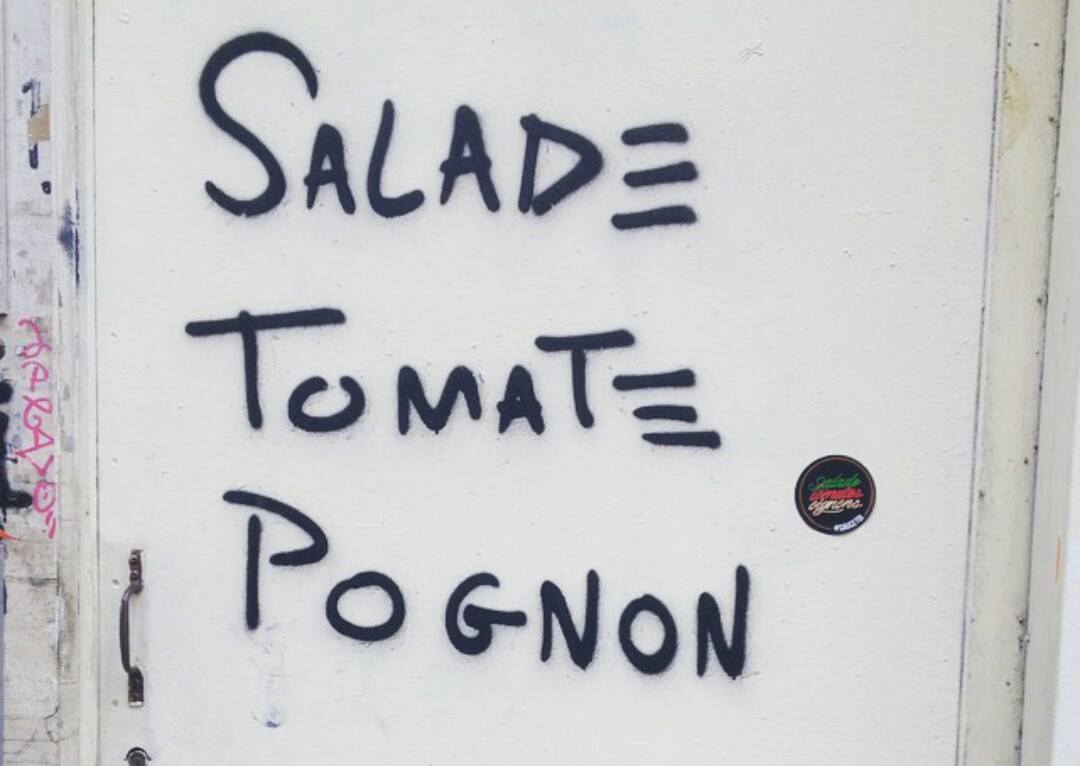 SALADE
TOMATE
POGNON
Salade
tomates
oignons